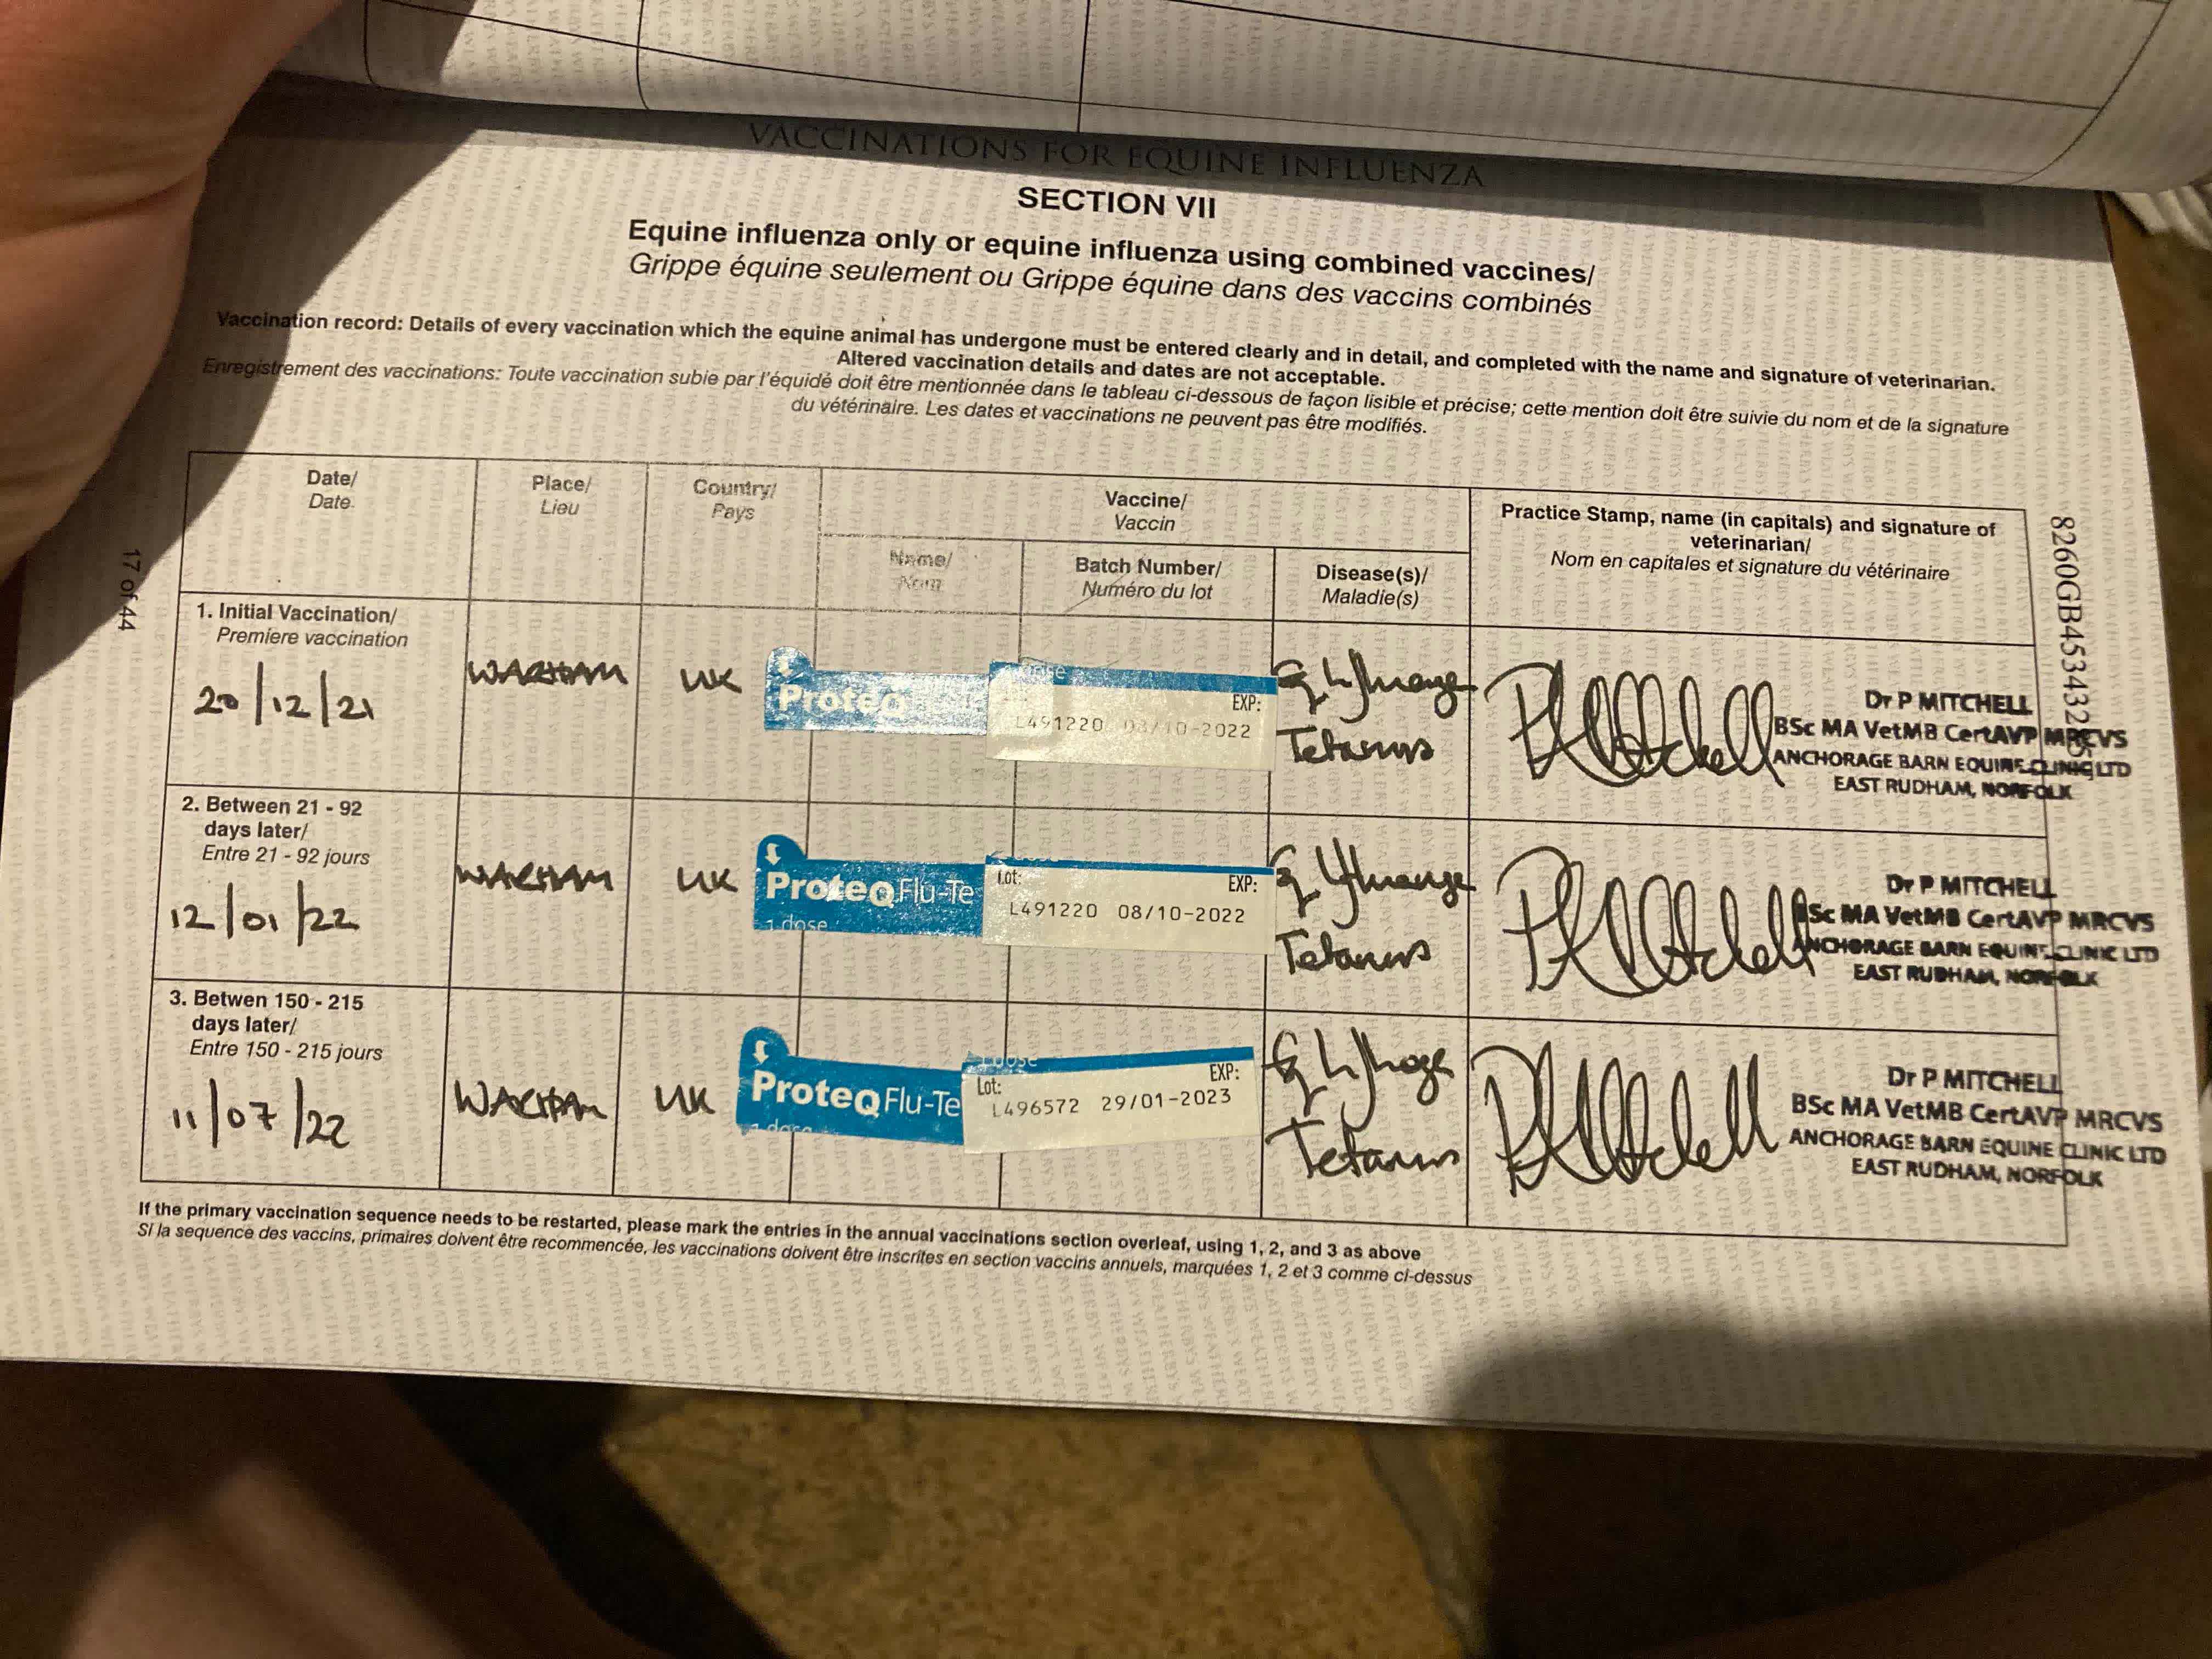 VACCINATIONS FOR EQUINE INFLUENZA
SECTION VII
Equine influenza only or equine influenza using combined vaccines/
Grippe équine seulement ou Grippe équine dans des vaccins combinés
Vaccination record: Details of every vaccination which the equine animal has undergone must be entered clearly and in detail, and completed with the name and signature of veterinarian.
Altered vaccination details and dates are not acceptable.
Enregistrement des vaccinations: Toute vaccination subie par l'équidé doit être mentionnée dans le tableau ci-dessous de façon lisible et précise; cette mention doit être suivie du nom et de la signature
du vétérinaire. Les dates et vaccinations ne peuvent pas être modifiés.
Date/
Date
Place/
Lieu
Country/
Pays
Vaccine/
Vaccin
Name/
Nom
Batch Number/
Numéro du lot
Disease(s)/
Maladie(s)
Practice Stamp, name (in capitals) and signature of
veterinarian/
Nom en capitales et signature du vétérinaire
1. Initial Vaccination/
Premiere vaccination
20/12/21
WARHAM
UK
ProteQ
dose
EXP:
L491220 08/10-2022
Tetanus
Dr P MITCHELL
BSc MA VetMB CertAVP MRCVS
ANCHORAGE BARN EQUINE CLINIC LTD
EAST RUDHAM, NORFOLK
2. Between 21 - 92
days later/
Entre 21 - 92 jours
12/01/22
WARHAM
UK
ProteqFlu-Te
1 dose
Lot: EXP:
L491220 08/10-2022
Tetanus
Dr P MITCHELL
BSc MA VetMB CertAVP MRCVS
ANCHORAGE BARN EQUINE CLINIC LTD
EAST RUDHAM, NORFOLK
3. Betwen 150 - 215
days later/
Entre 150 - 215 jours
11/07/22
WARHAM
UK
ProteqFlu-Te
1 dose
Lot: EXP:
L496572 29/01-2023
Tetanus
Dr P MITCHELL
BSc MA VetMB CertAVP MRCVS
ANCHORAGE BARN EQUINE CLINIC LTD
EAST RUDHAM, NORFOLK
If the primary vaccination sequence needs to be restarted, please mark the entries in the annual vaccinations section overleaf, using 1, 2, and 3 as above
Si la sequence des vaccins, primaires doivent être recommencée, les vaccinations doivent être inscrites en section vaccins annuels, marquées 1, 2 et 3 comme ci-dessus
17 of 44